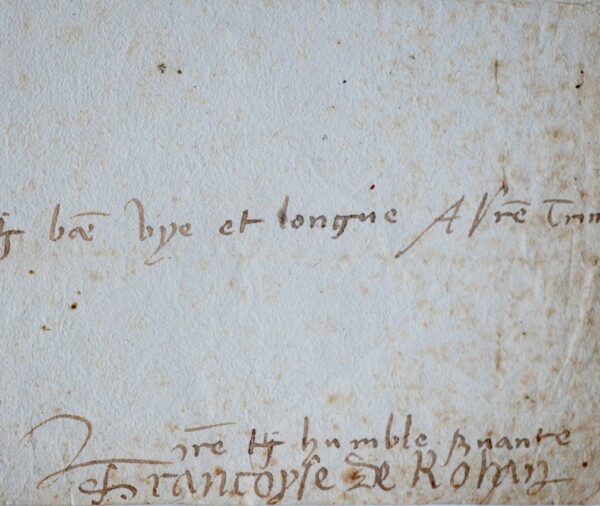 bõe vye et longue A vrẽ
vrẽ humble svante
Françoyse de Rohan